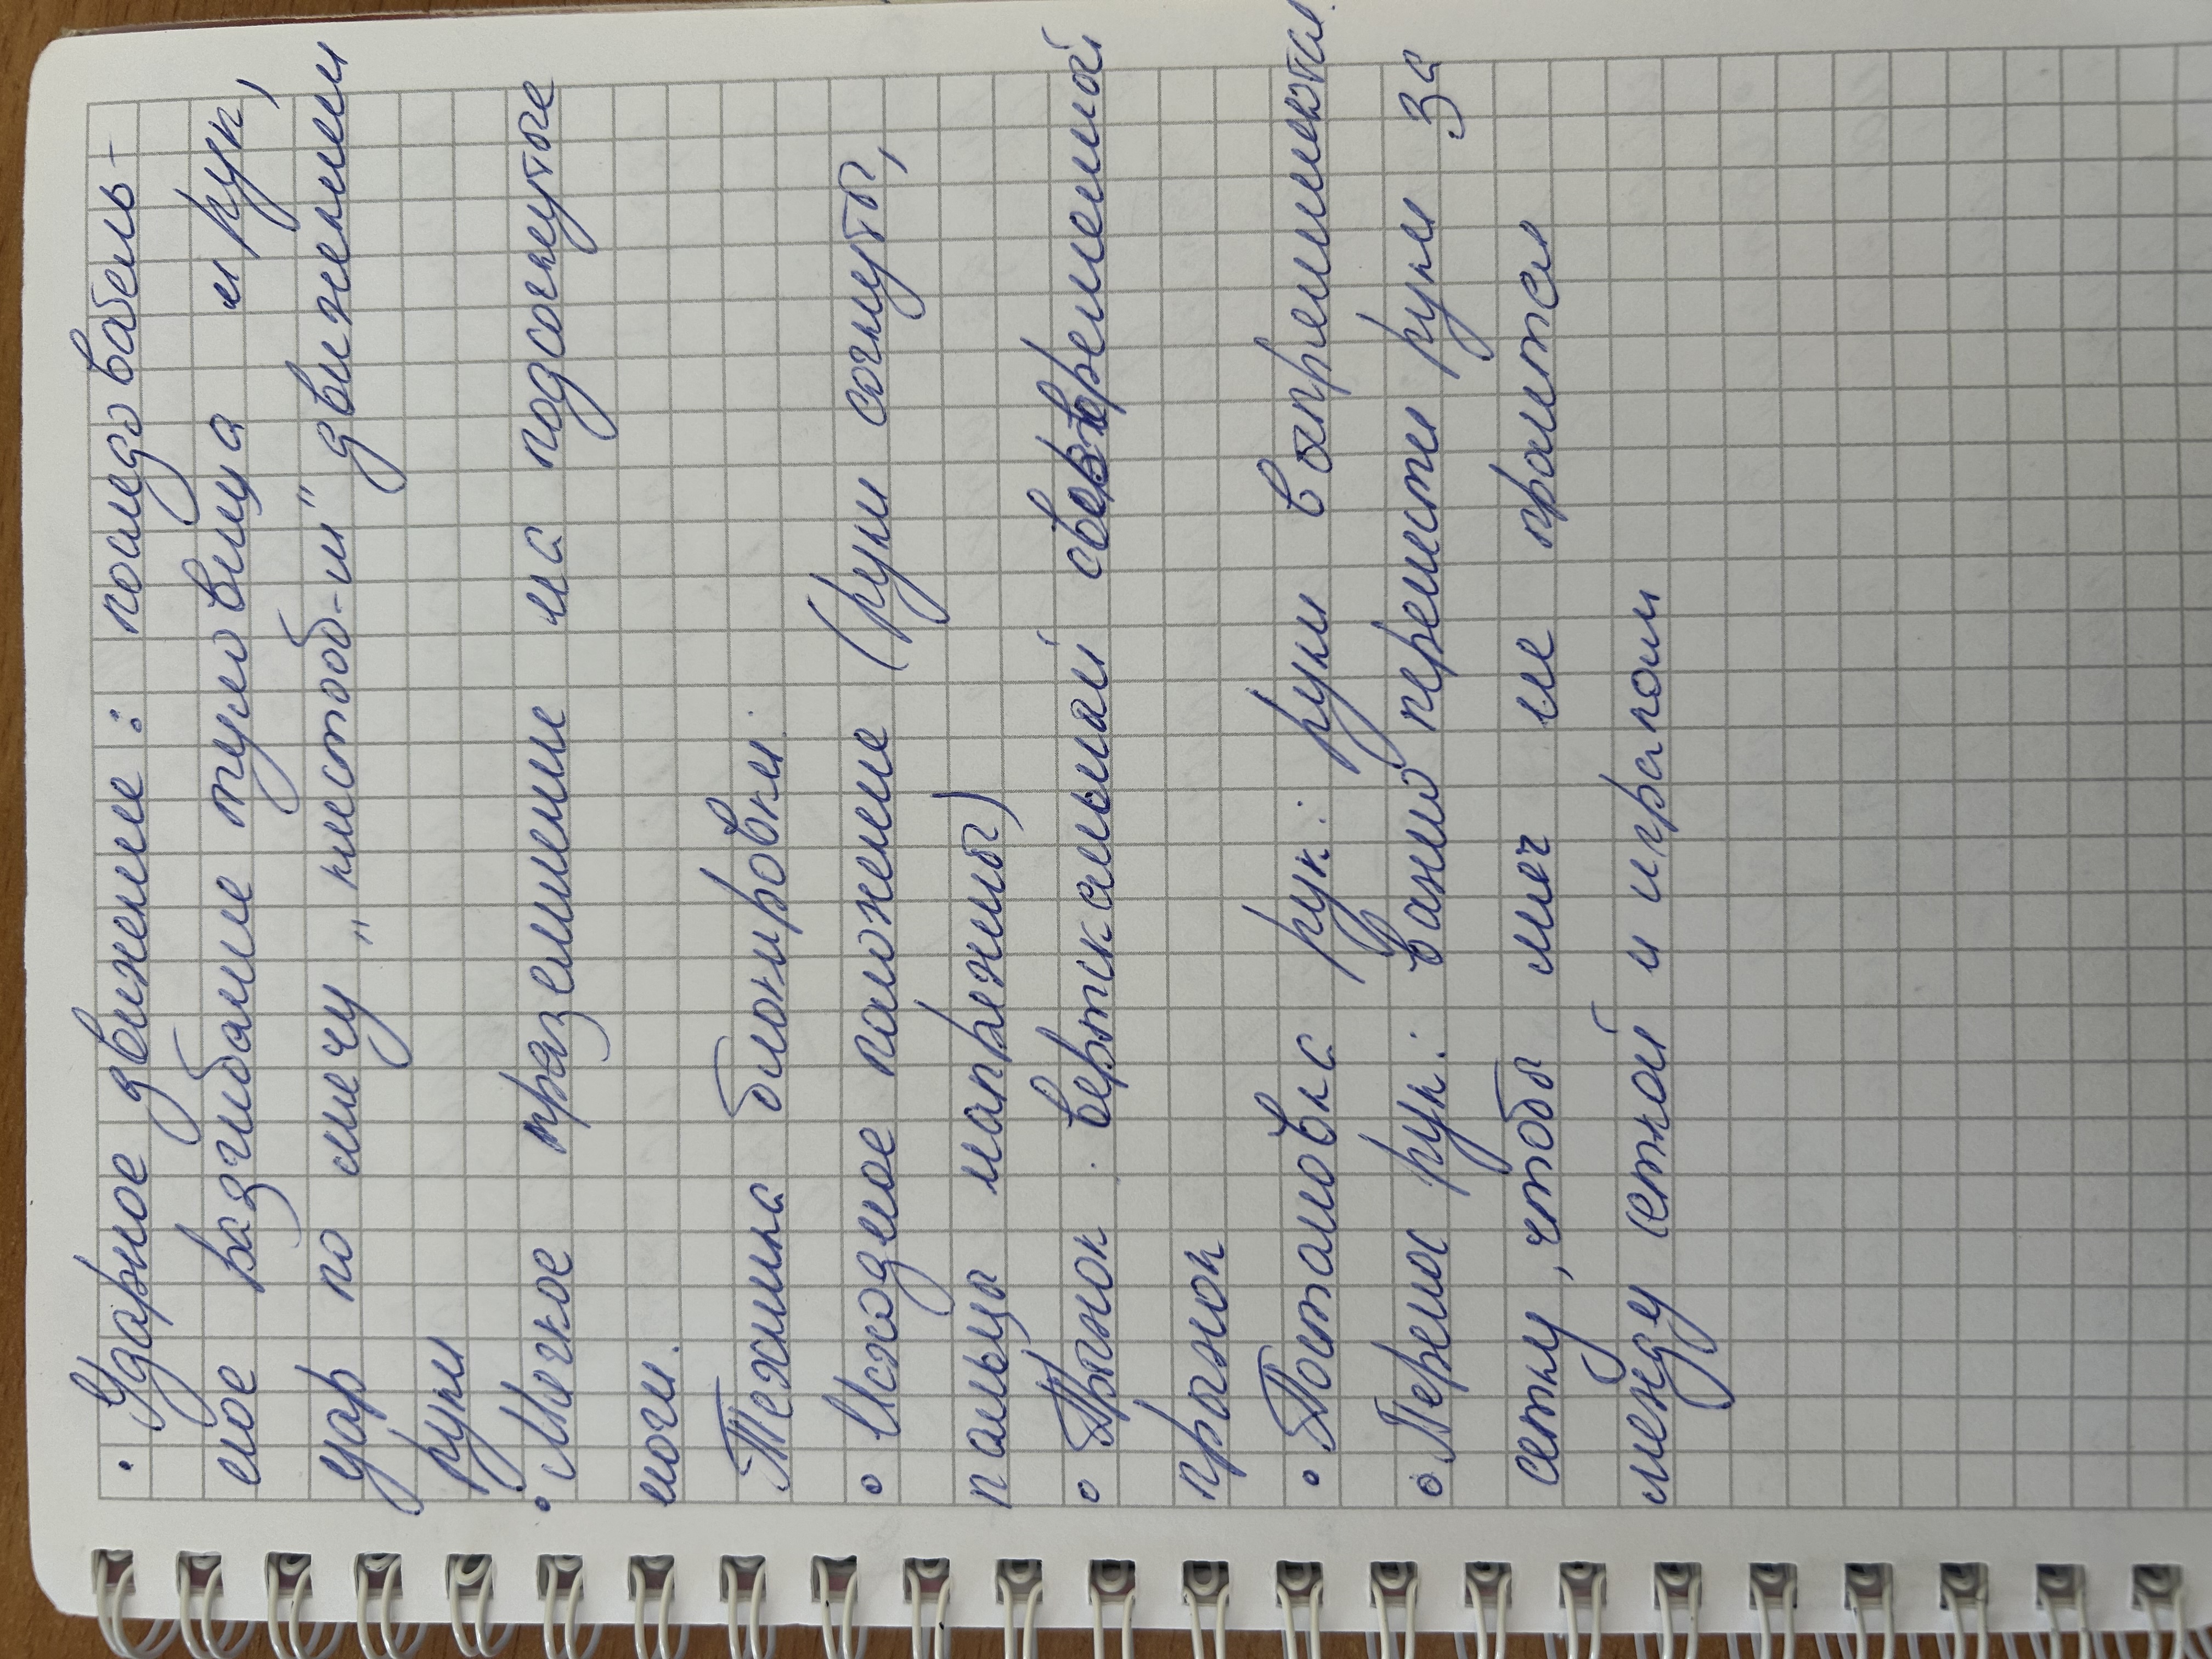 · Ударное движение: последователь-
ное разгибание туловища и рук,
удар по мячу „кистоб-и" движением
руки
· Мягкое приземление на подсогнутые
ноги.
Техника блокировки.
∘ Исходное положение (руки согнуты,
пальцы напряжены)
∘ Прыжок. вертикальный
прыжок
· Постановка рук: руки выпрямляются.
∘ Перенос рук: важно перенести руки за
сетку, чтобы мяч не провалился
между сеткой и игроком